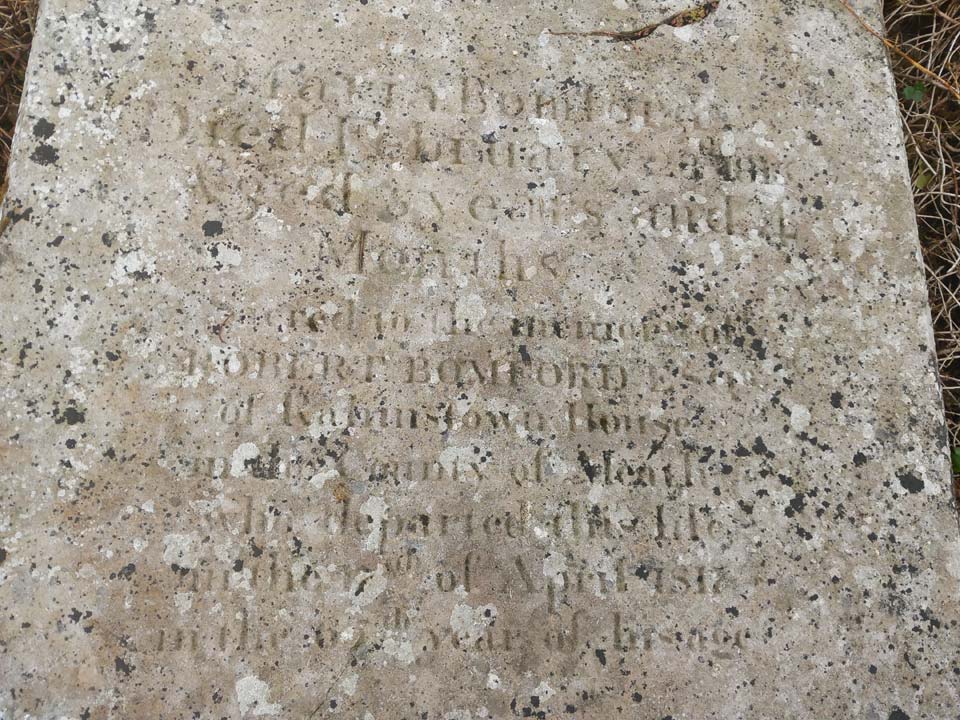 Bomford
Died February
Aged 3 years and 4
Months
Sacred to the memory of
ROBERT BOMFORD ESQr
of Rahinstown House
in the County of Meath
who departed this life
on the of April
in the year of his age